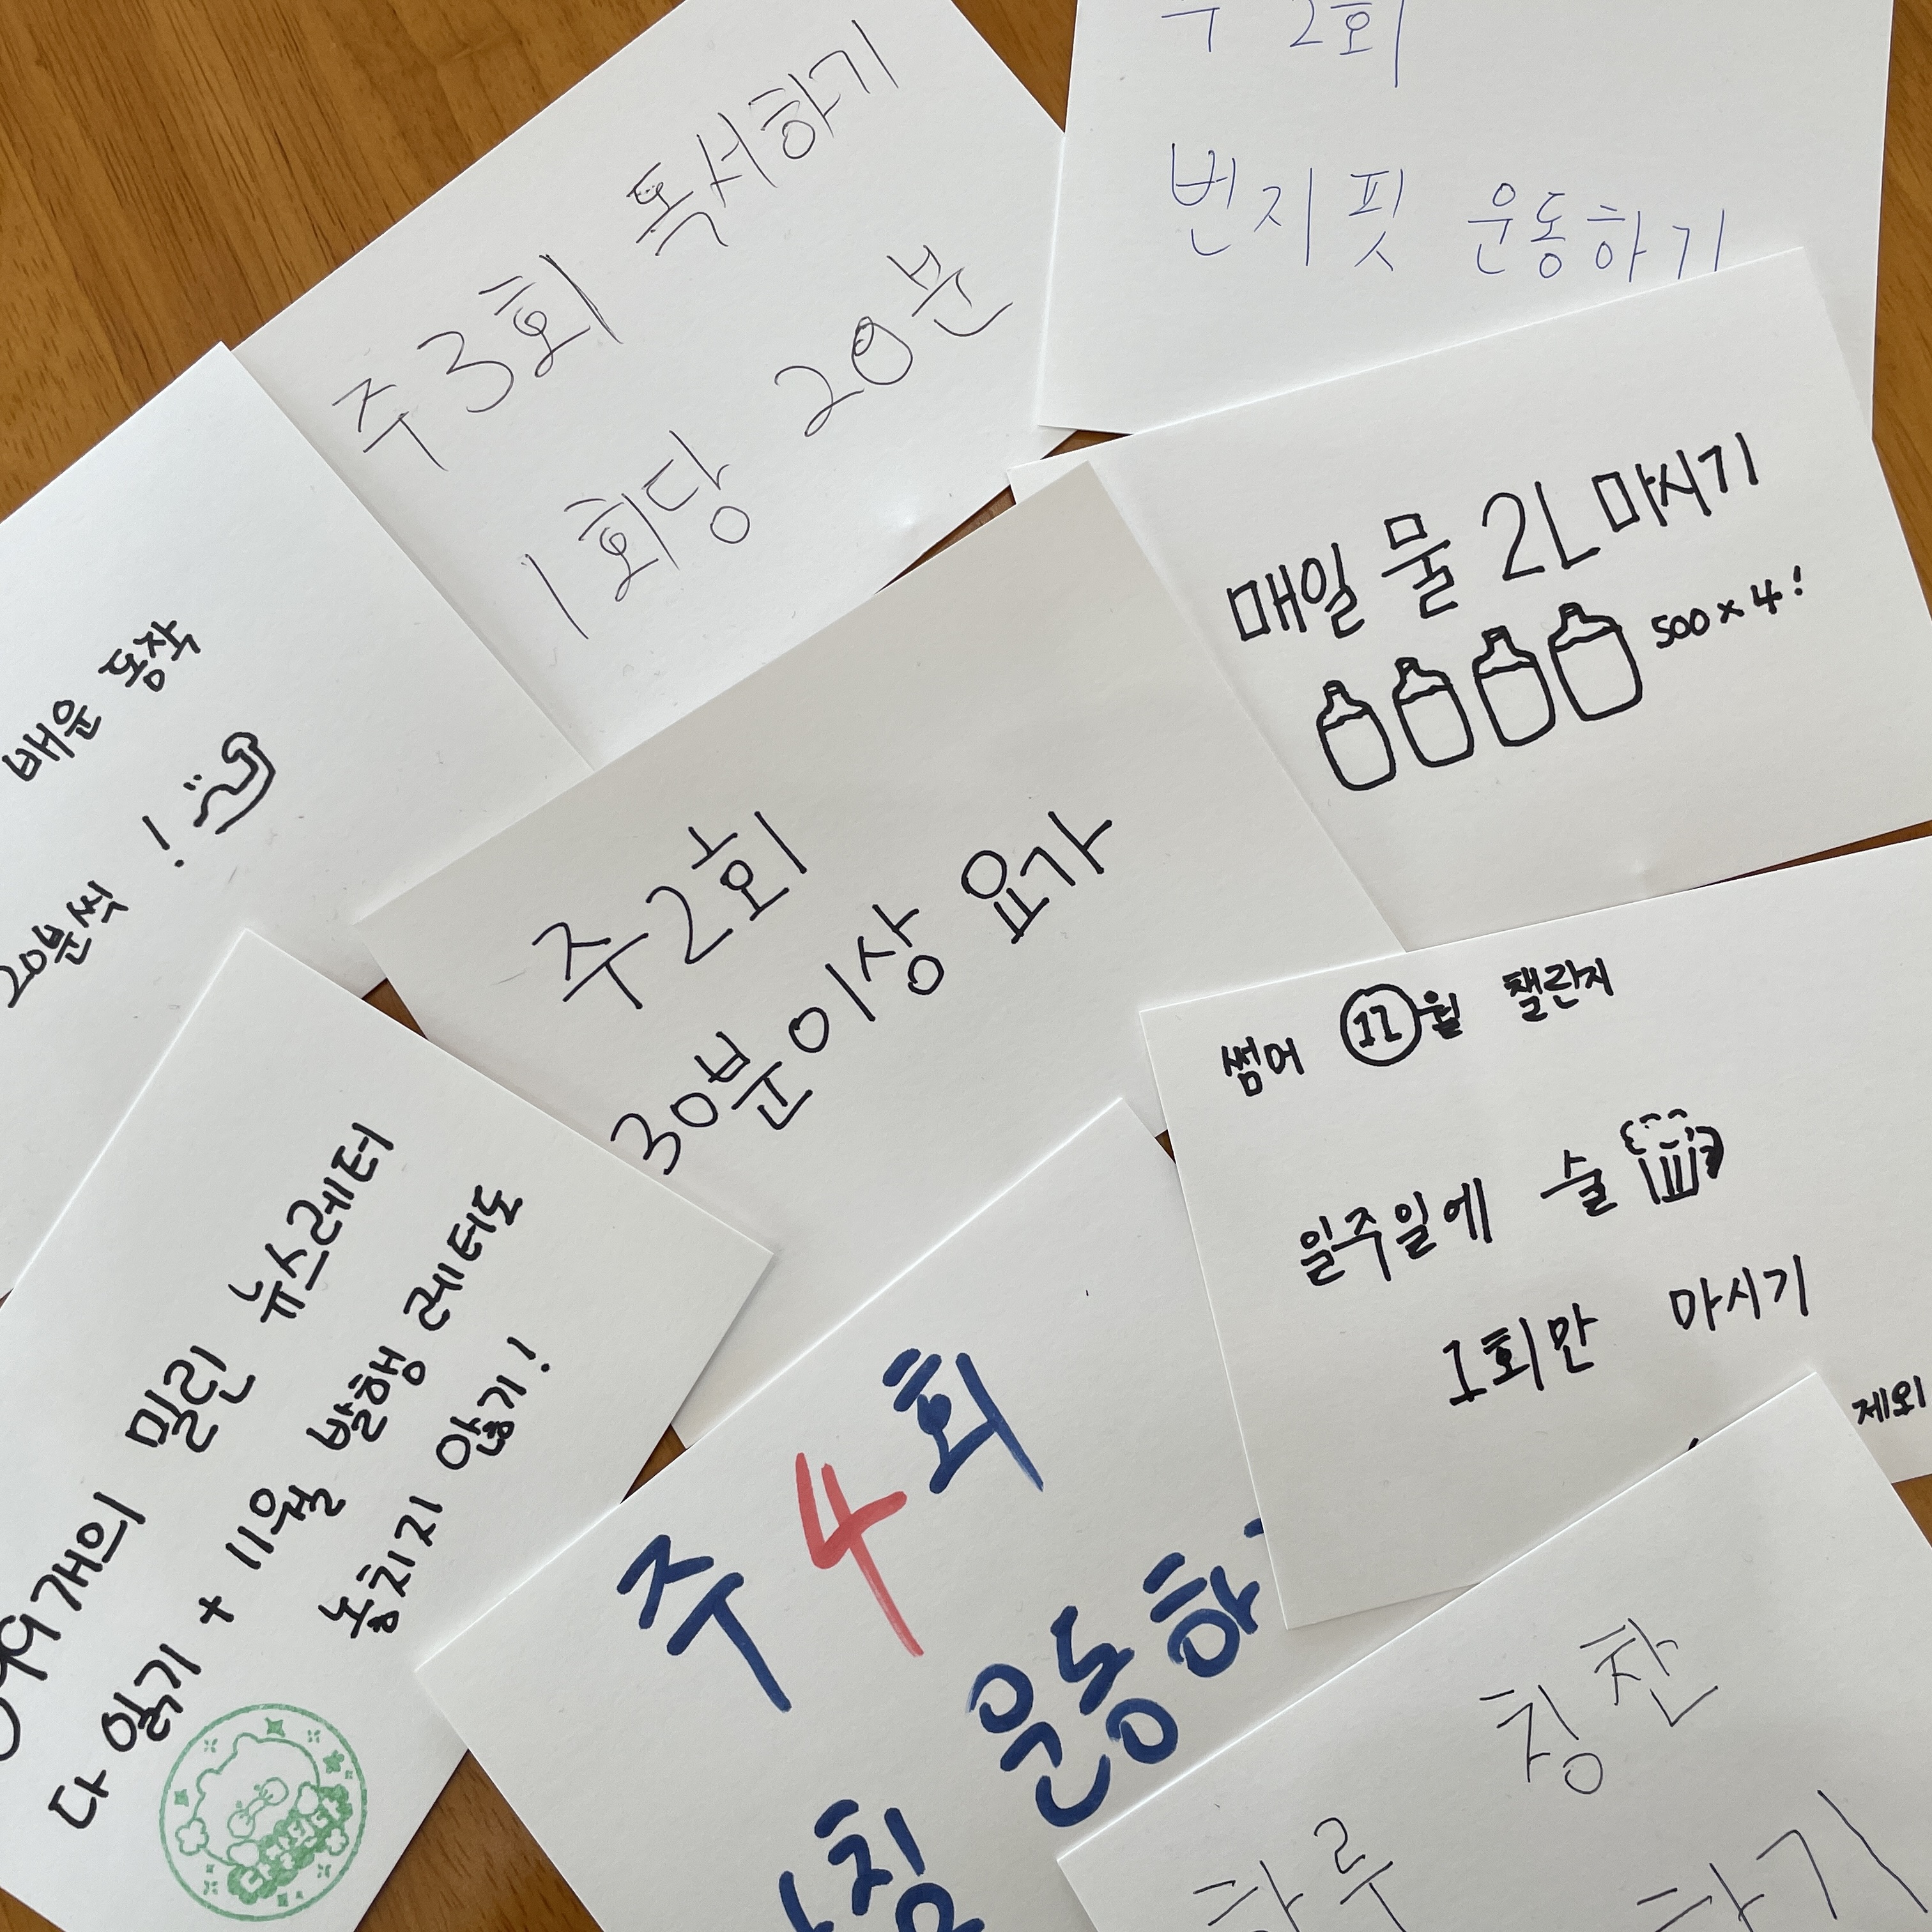 주 2회
번지핏 운동하기
주 3회 독서하기
1회당 20분
매일 물 2L 마시기
500 × 4!
배운 동작
20분씩 !
주 2회
30분 이상 요가
썸머 11월 챌린지
일주일에 술
1회만 마시기
제외
99개의 밀린 뉴스레터
다 읽기 + 11월 발행 레터도
놓치지 않기!
주 4회
운동하
칭찬
하루
하기